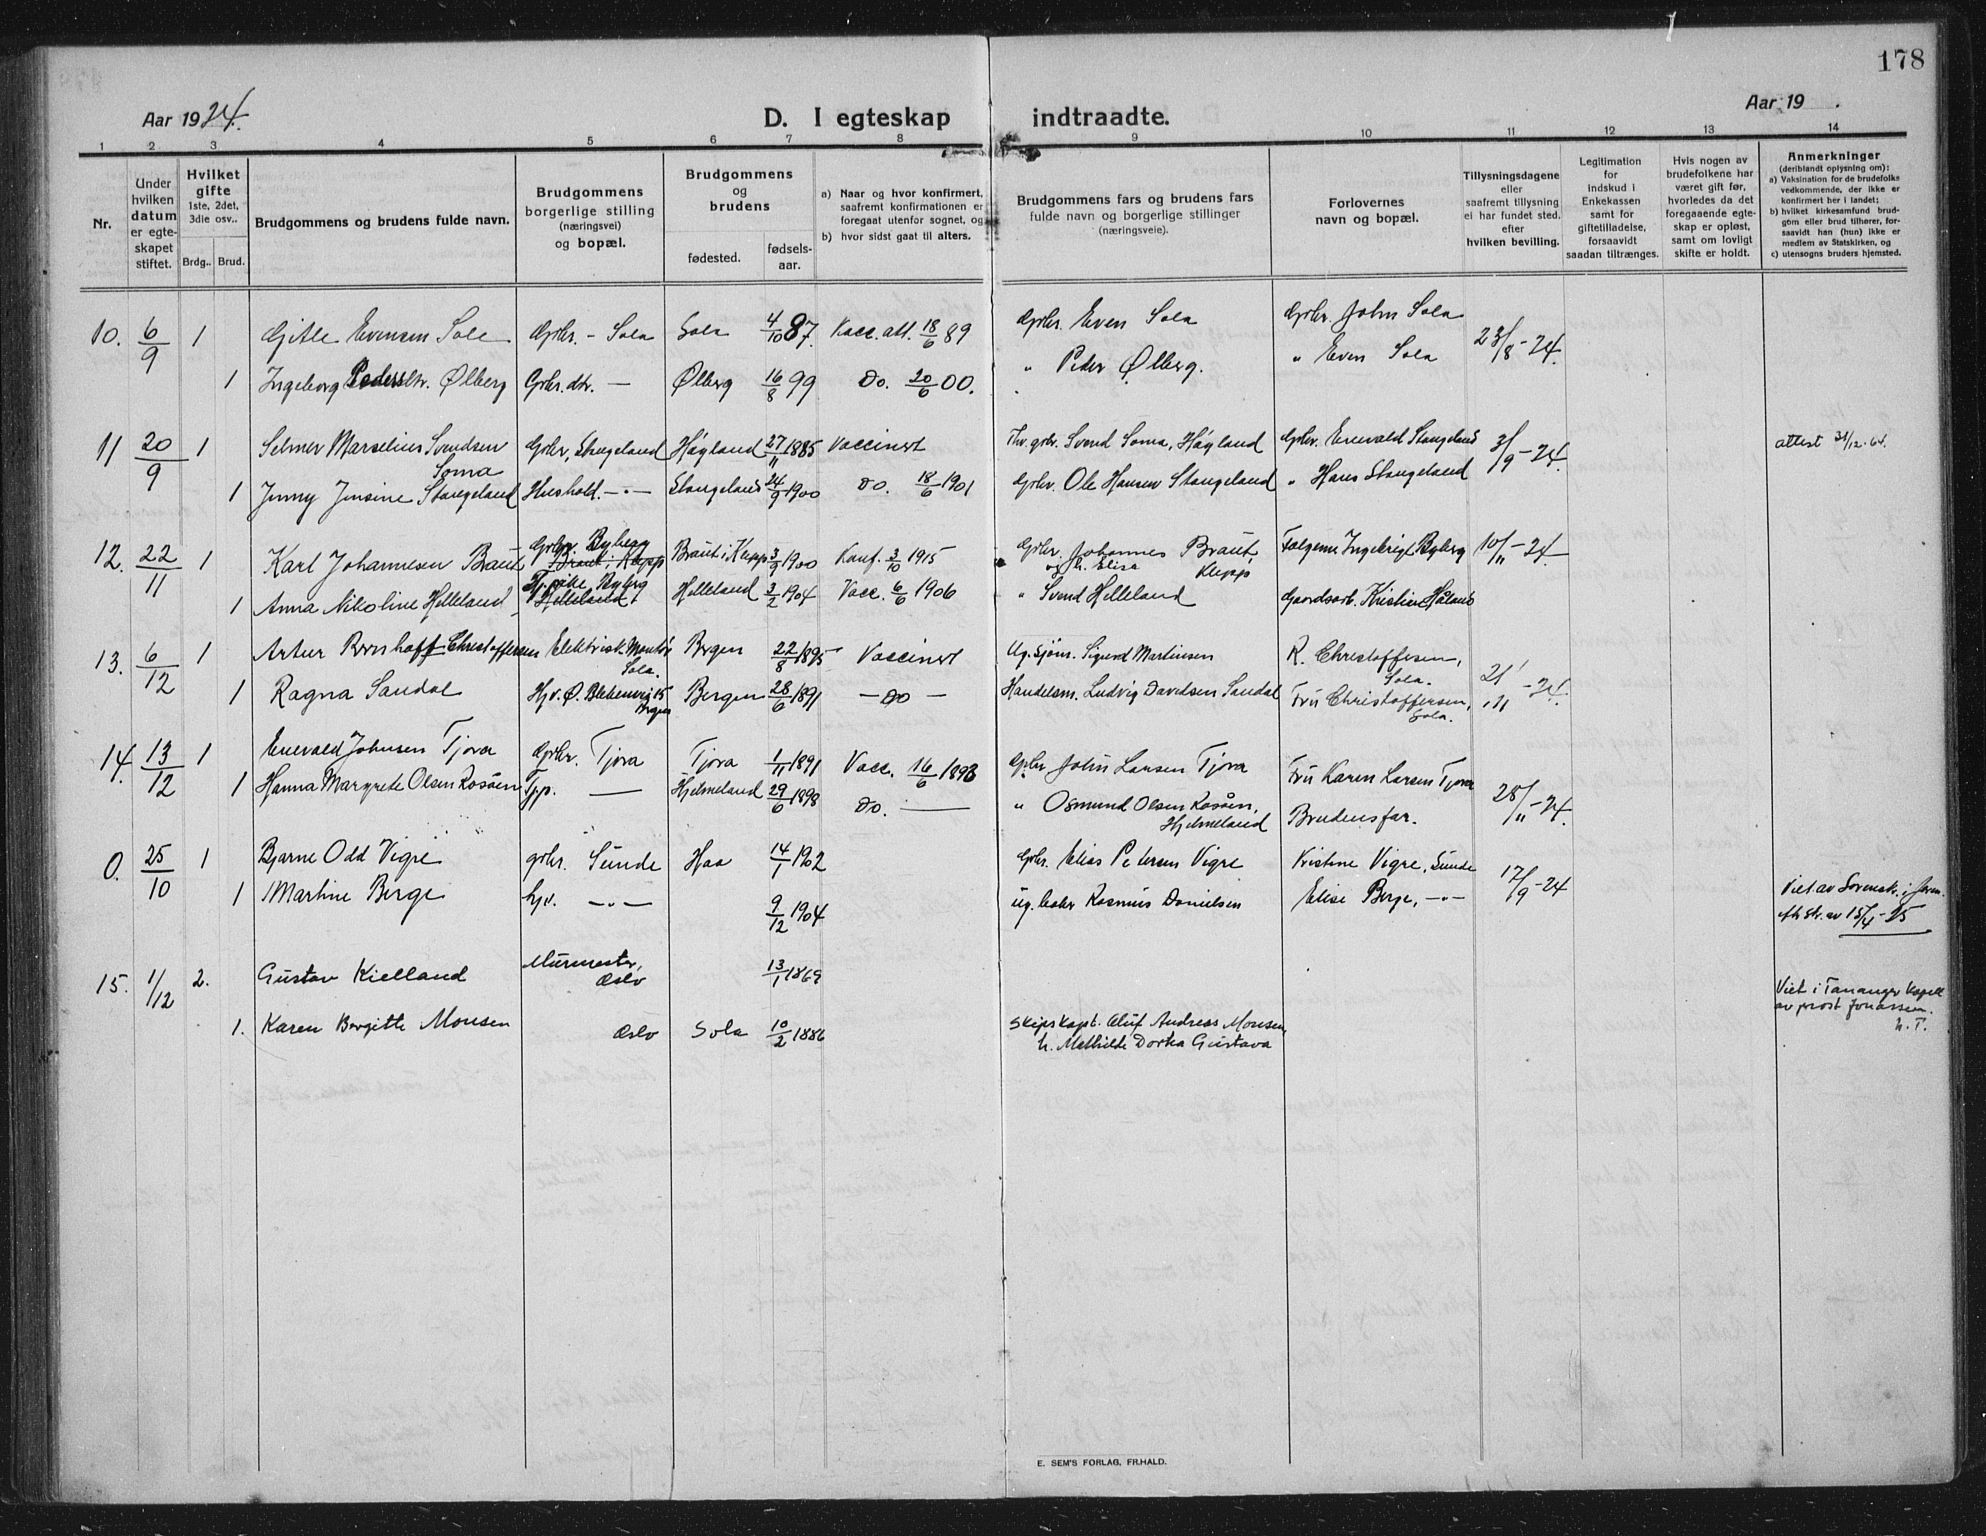 178
Aar 1924.
D. I egteskap indtraadte.
Aar 19 .
1 2 3 4 5 6 7 8 9 10 11 12 13 14
Nr.
Under hvilken datum er egte-skapet stiftet.
Hvilket gifte 1ste, 2det, 3die osv..
Brdg.. Brud.
Brudgommens og brudens fulde navn.
Brudgommens borgerlige stilling (næringsvei) og bopæl.
Brudgommens og brudens
fødested.
fødsels-aar.
a) Naar og hvor konfirmert, saafremt konfirmationen er foregaat utenfor sognet, og
b) hvor sidst gaat til alters.
Brudgommens fars og brudens fars fulde navn og borgerlige stillinger (næringsveie).
Forlovernes navn og bopæl.
Tillysningsdagene eller saafremt tillysning ei har fundet sted. efter hvilken bevilling.
Legitimation for indskud i Enkekassen samt for giftetilladelse, forsaavidt saadan tiltrænges.
Hvis nogen av brudefolkene har været gift før, hvorledes da det foregaaende egte-skap er opløst, samt om lovligt skifte er holdt.
Anmerkninger (deriblandt oplysning om):
a) Vaksination for de brudefolks vedkommende, der ikke er konfirmert her i landet;
b) hvilket kirkesamfund brud-gom eller brud tilhører, for-saavidt han (hun) ikke er medlem av Statskirken, og
c) utensogns bruders hjemsted.
10. 6/9 1 Gitle Evensen Sola Grbr. - Sola Sola 4/10 87. Vacc. att. 18/6 89 Grbr. Even Sola Grbr. John Sola 23/8 - 24.
1 Ingeborg Pedersdtr. Ølberg Grbr. dtr. — Ølberg 16/8 99 Do. 20/6 00. " Peder Ølberg. " Even Sola
11 20/9 1 Selmer Marselius Svendsen Soma Grbr. Stangeland Høyland 27/11 1885 Vaccinert Fhv. grbr. Svend Soma, Høyland Grbr. Enevald Stangeland 3/9 - 24. attest 31/12-64.
1 Jenny Jensine Stangeland Hushold. -"- Stangeland 24/9 1900 Do. 18/6 1901 Grbr. Ole Hansen Stangeland " Hans Stangeland
12. 22/11 1 Karl Johannesen Braut Grbr. Byberg Braut i Klepp Braut i Klepp 3/9 1900 Konf. 3/10 1915 Grbr. Johannes Braut, Klepp og h. Elisa Ingebrigt Byberg 10/11 - 24.
1 Anna Nikoline Helleland Byberg Helleland Helleland 3/2 1904 Vacc. 6/6 1906 " Svend Helleland Gaardsarb. Kristian Håland
13. 6/12 1 Artur Bernhoff Christoffersen Elektrisk. Montør Sola. Bergen 22/8 1895 Vaccinert Ug. Sjøm. Sigurd Martinsen R. Christoffersen, Sola. 21/11 - 24.
1 Ragna Sandal Hjv. Ø. Blekevei 15 Bergen Bergen 28/6 1891 — Do — Handelsm. Ludvig Davidsen Sandal Fru Christoffersen, Sola.
14. 13/12 1 Enevald Johnsen Tjora Grbr. Tjora Tjora 1/11 1891 Vacc. 16/6 1898 Grbr John Larsen Tjora Fru Karen Larsen Tjora 28/11 - 24.
1 Hanna Margrete Olsen Rosåen Tjp. — Hjelmeland 29/6 1898 Do. — " Osmund Olsen Rosåen, Hjelmeland Brudens far.
0. 25/10 1 Bjarne Odd Vigre grbr. Sunde Haa 14/1 1902 Grbr. Elias Petersen Vigre Kristine Vigre, Sunde 17/9 - 24
1 Martine Berge hjv. -"- 9/12 1904 ug. Rasmus Danielsen Elise Berge, -"- Viet av Sorensk. i Jæren. av 15/4 - 25
15. 1/12 2. Gustav Kielland Murmester, Oslo 13/1 1869 Viet i Tananger Kapell av prost Jonassen. h. T.
1. Karen Bergitte Monsen Oslo Sola 10/2 1886 Skipskapt. Oluf Andreas Monsen h. Mathilde Dortea Gustava
E. SEM'S FORLAG, FR.HALD.